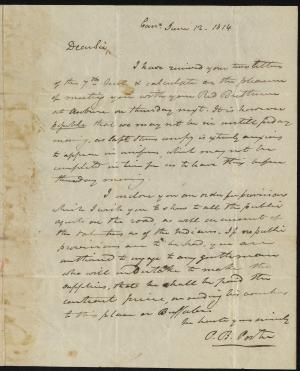 June 12. 1814
Dear Sir,
I have received your two letters
of the 7th Inst & calculate on the pleasure
of meeting you with your Red Brethren
at on thursday next. It is however
possible that we may not be in until friday
as Capt company is extremely anxious
to appear in uniform, which may not be
completed in time for us to leave this before
thursday morning.
I inclose you an order for provisions
which I wish you to show to all the public
agents on the road as will as
of the as of the Indians. If no public
provisions are to be had, you are
authorised to engage to any gentleman
who will undertake to make the
supplies, that he shall be paid the
contract price, on sending his vouchers
to this place or Buffalo.
yours sincerely
P. B. Porter